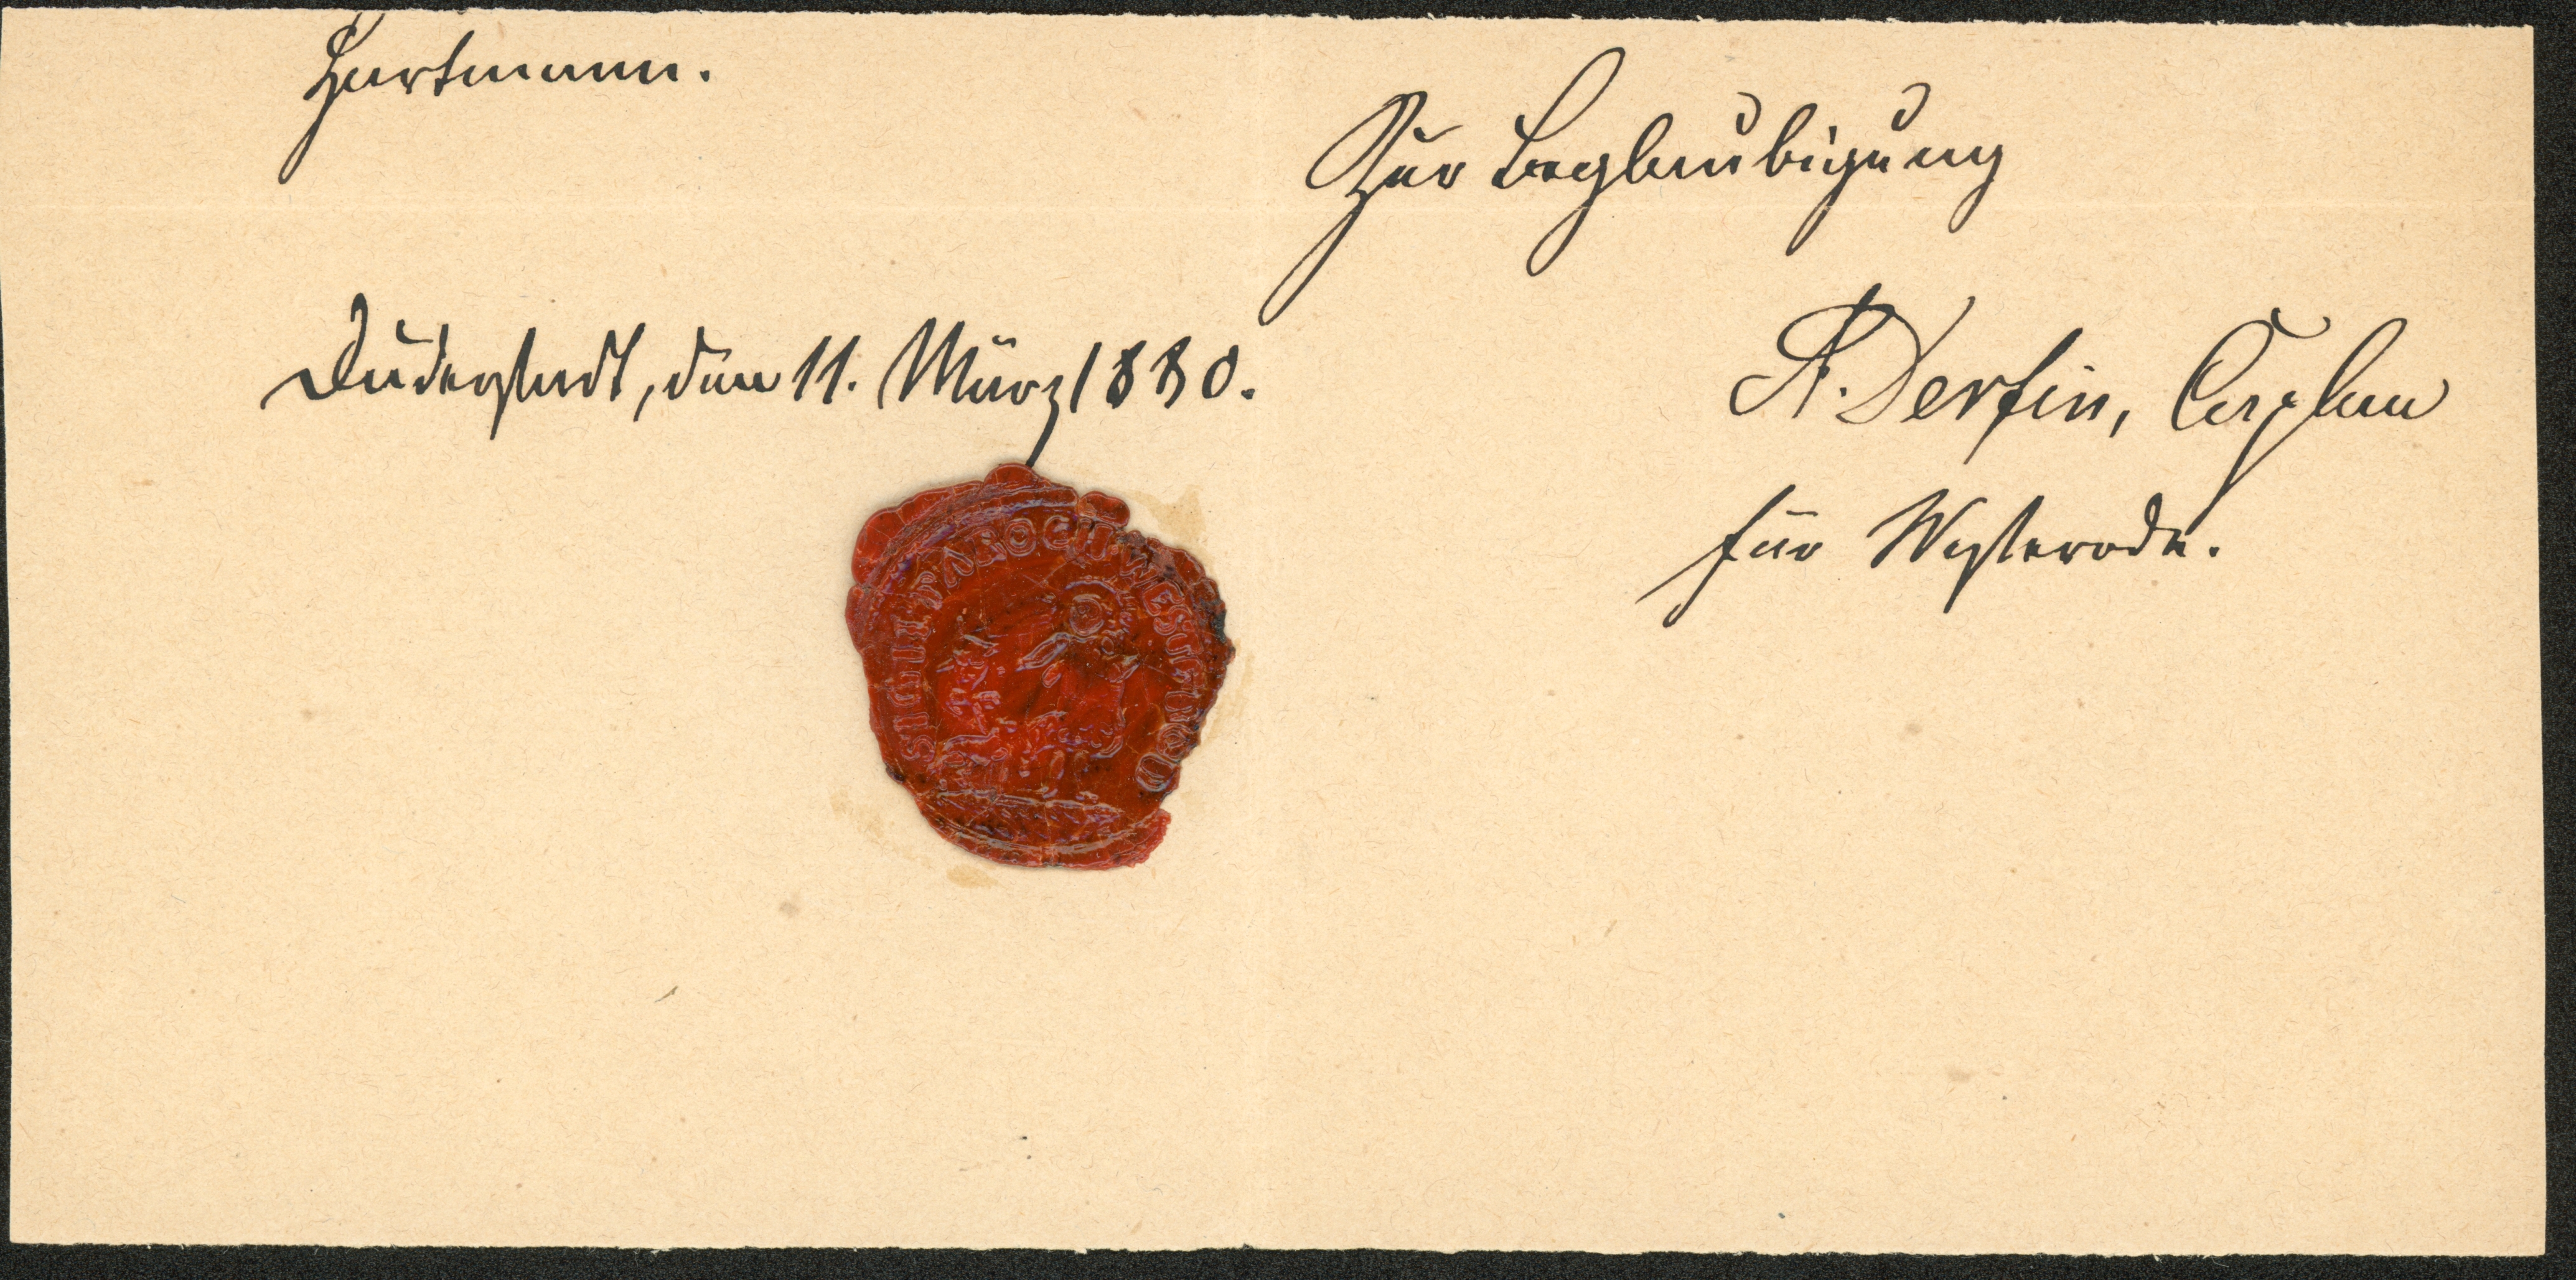 Hartmann.
Zur Beglaubigung
Duderstadt, den 11. März 1880.
A. Derfin, Caplan
für Westerode.
SIGILL. PAROCH. WESTEROD